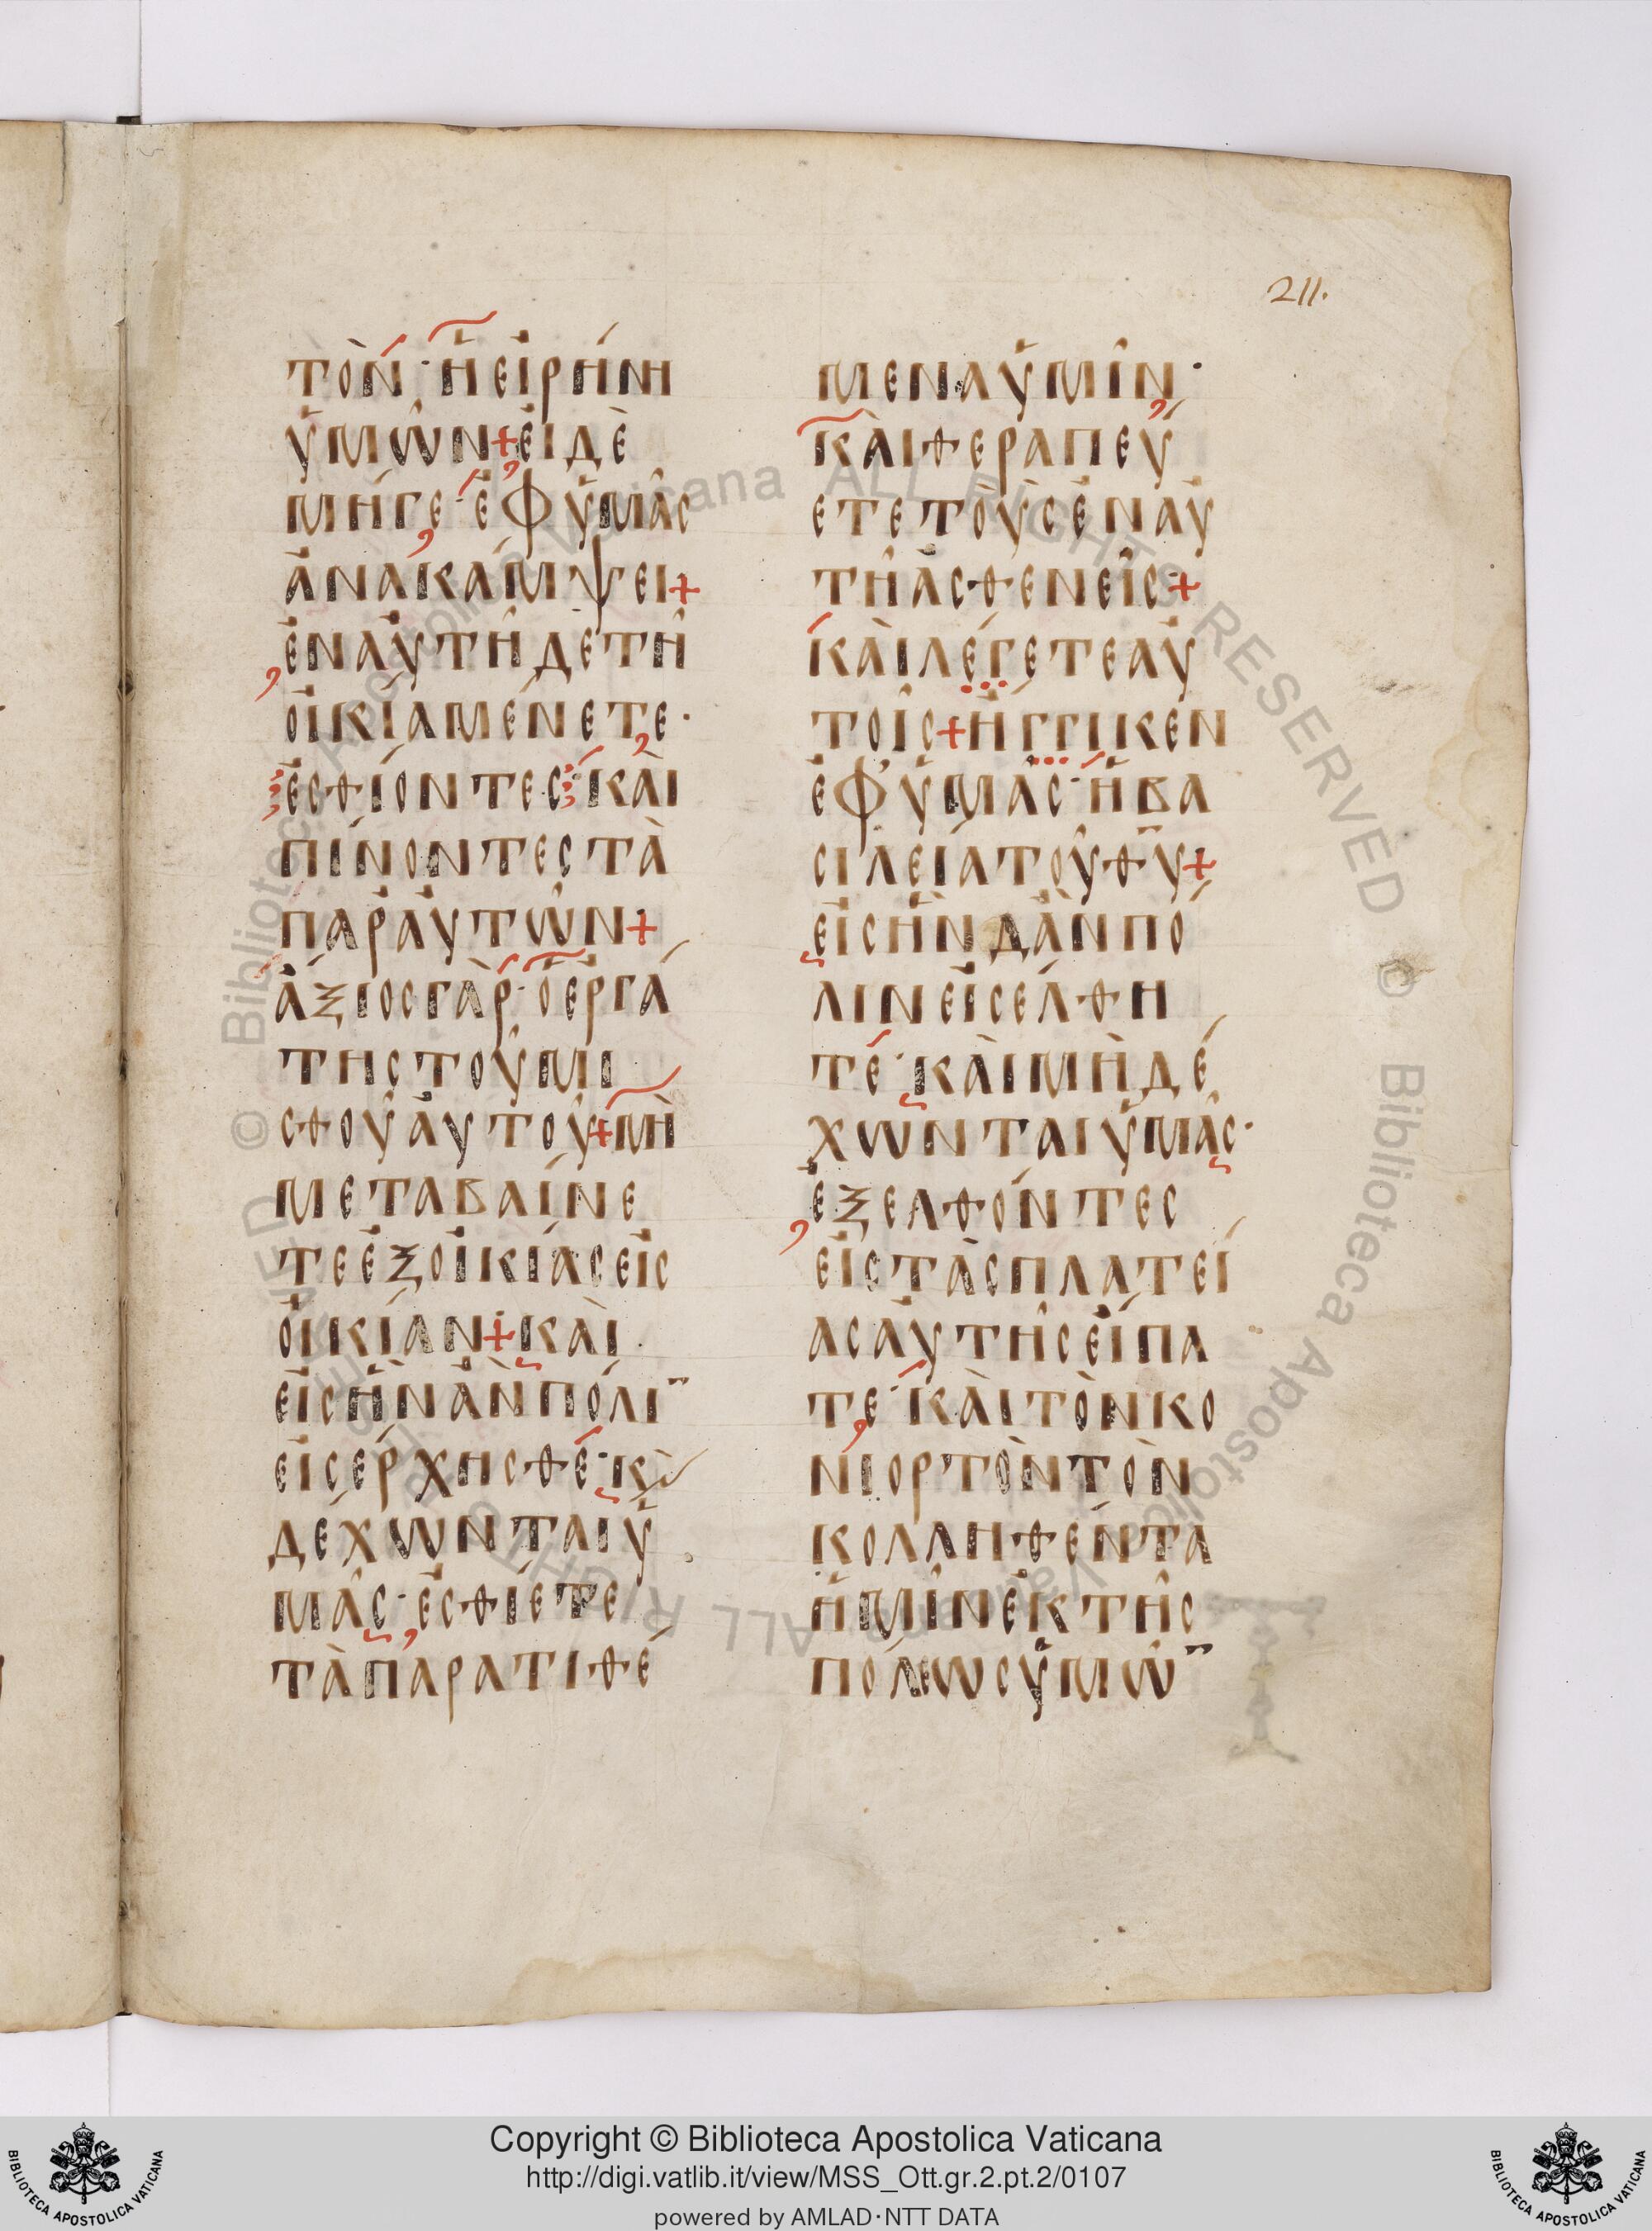 211.
ΤῸΝ· Ἡ ΕἸΡΉΝΗ
ὙΜΩ͂Ν+ ΕἸ ΔῈ
ΜΉΓΕ· ἘΦ ὙΜΑ͂Σ
ἈΝΑΚΆΜΨΕΙ+
ἘΝ ΑὐΤΗ͂ ΔΕ ΤΗ͂
ΟἸΚΊΑ ΜΈΝΕΤΕ·
ἘΣΘΊΟΝΤΕΣ· ΚΑῚ
ΠΊΝΟΝΤΕΣ ΤᾺ
ΠΑΡ ΑὐΤΩ͂Ν+
ἌΞΙΟΣ ΓᾺΡ· Ὁ ἘΡΓΆ
ΤΗΣ ΤΟΥ͂ ΜΙ
ΣΘΟΥ͂ ΑὐΤΟΥ͂+ ΜῊ
ΜΕΤΑΒΑΊΝΕ
ΤΕ ἘΞ ΟἸΚΊΑΣ ΕἸΣ
ΟἸΚΊΑΝ+ ΚΑῚ
ΕἸΣ ἫΝ ἊΝ ΠΌΛΙ͞
ΕἸΣΈΡΧΗΣΘΈ· Κ̀
ΔΈΧΩΝΤΑΙ Ὑ
ΜΑ͂Σ· ἘΣΘΊΕΤΕ
ΤᾺ ΠΑΡΑΤΙΘΈ
ΜΕΝΑ ὙΜΙ͂Ν·
ΚΑῚ ΘΕΡΑΠΕΎ
ΕΤΕ ΤΟῪΣ ἘΝ Αὐ
ΤΗ͂ ἈΣΘΕΝΕΙ͂Σ+
ΚΑῚ ΛΈΓΕΤΕ Αὐ
ΤΟΙ͂Σ+ ἬΓΓΙΚΕΝ
ἘΦ' ὙΜΑ͂Σ· Ἡ ΒΑ
ΣΙΛΕΊΑ ΤΟΥ͂ ΘΥ͞+
ΕἸΣ ἫΝ Δ ἊΝ ΠΌ
ΛΙΝ ΕἸΣΈΛΘΗ
ΤΈ· ΚΑῚ ΜῊ ΔΈ
ΧΩΝΤΑΙ ὙΜΑ͂Σ·
ἘΞΕΛΘΌΝΤΕΣ
ΕἸΣ ΤᾺΣ ΠΛΑΤΕΊ
ΑΣ ΑὐΤΗ͂Σ ΕἼΠΑ
ΤΈ· ΚΑῚ ΤῸΝ ΚΟ
ΝΙΟΡΤῸΝ ΤῸΝ
ΚΟΛΛΗΘΈΝΤΑ
ἩΜΙ͂Ν ἘΚ ΤΗ͂Σ
ΠΌΛΕΩΣ ὙΜΩ͂͞
Copyright © Biblioteca Apostolica Vaticana
http://digi.vatlib.it/view/MSS_Ott.gr.2.pt.2/0107
powered by AMLAD·NTT DATA
BIBLIOTECA APOSTOLICA VATICANA
BIBLIOTECA APOSTOLICA VATICANA
© Biblioteca Apostolica Vaticana ALL RIGHTS RESERVED © Biblioteca Apostolica Vaticana ALL RIGHTS RESERVED